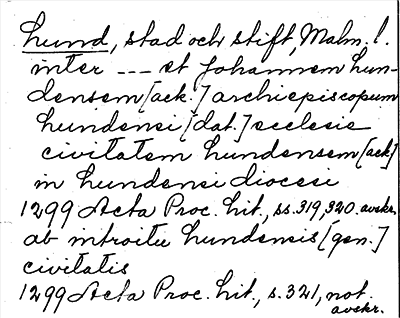 Lund, stad och stift, Malm. l.
inter --- et Johannem Lun-
densem [ack.] archiepiscopum
Lundensi [dat.] ecclesie
civitatem Lundensem [ack]
in Lundensi diocesi
1299 Acta Proc. Lit., ss. 319, 320. avskr.
ab introitu Lundensis [gen.]
civitatis
1299 Acta Proc. Lit., s. 321, not.
avskr.